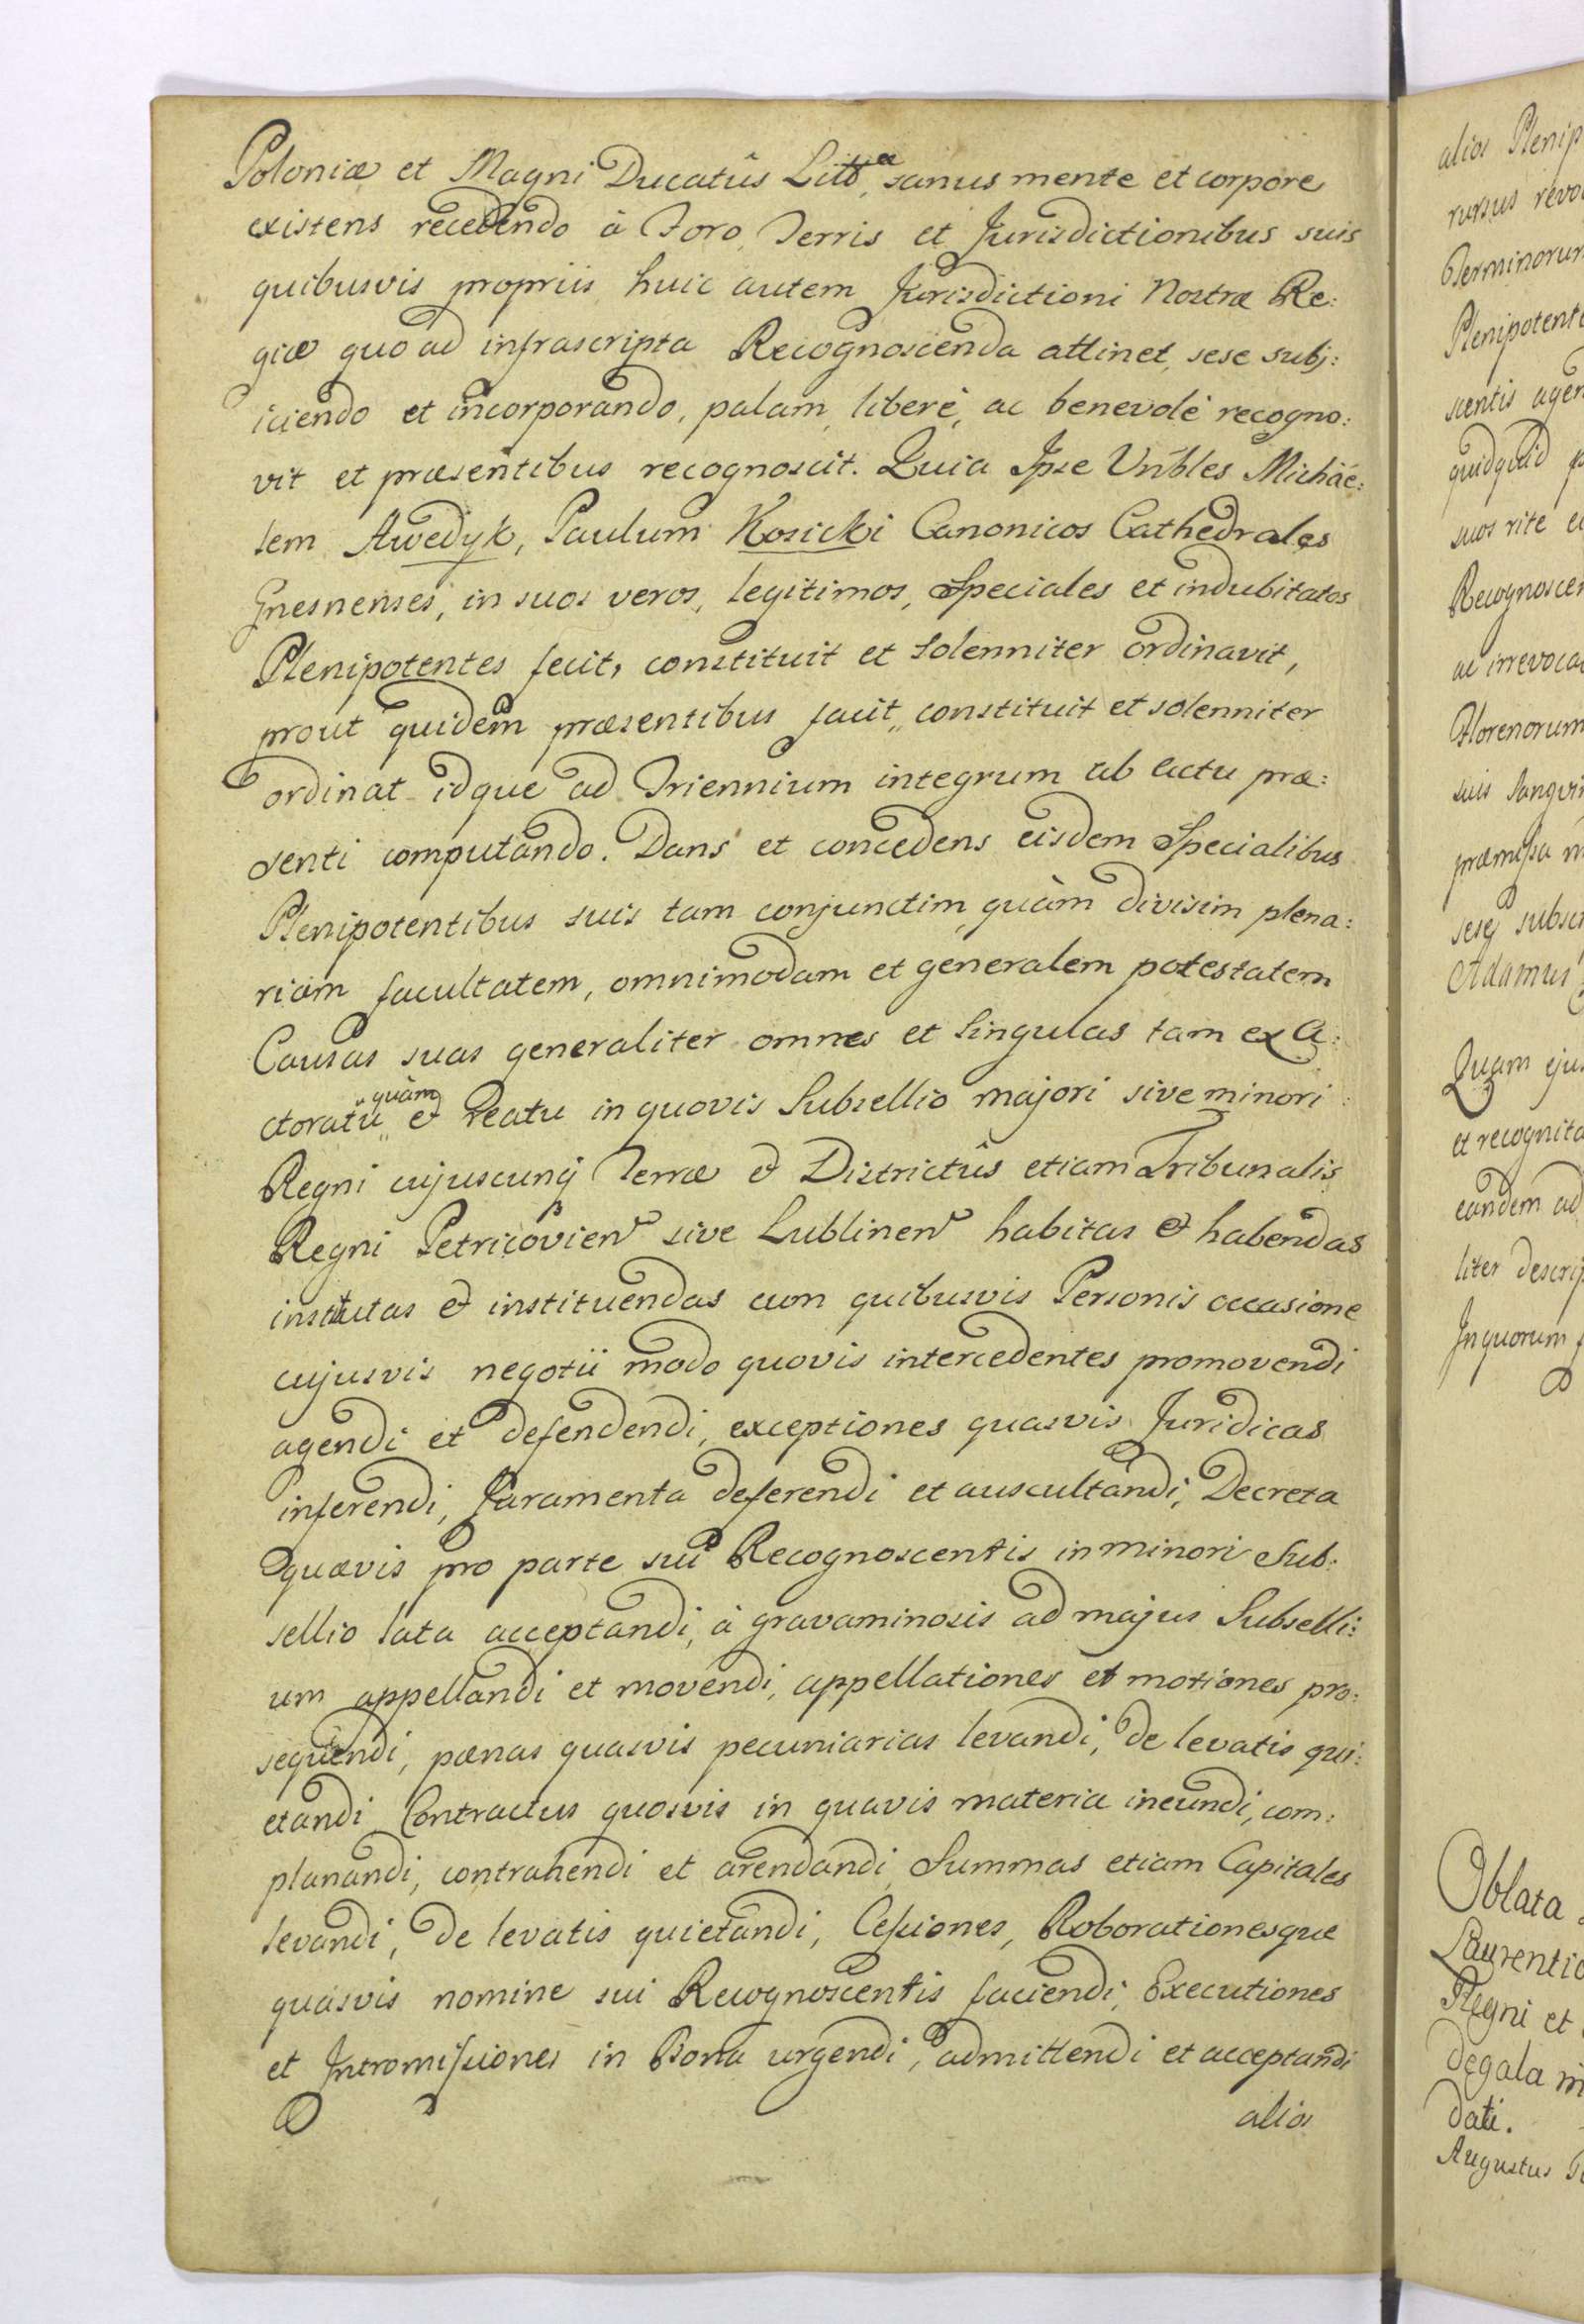 Poloniæ et Magni Ducatûs Litt̃æ sanus mente et corpore
existens recedendo à Foro, Terris et Jurisdictionibus suis
quibusvis propriis, huic autem Jurisdictioni Nostræ Re:
giæ quo ad infrascripta Recognoscenda attinet, sese subj:
iciendo et incorporando, palam, liberè, ac benevolè recogno:
vit et præsentibus recognoscit. Quia Ipse Vnbles Michäe:
lem Awedyk, Paulum Kosicki Canonicos Cathedrales
Gnesnenses, in suos veros, legitimos, Speciales et indubitatos
Plenipotentes fecit, constituit et Solenniter ordinavit,
prout quidem præsentibus facit, constituit et solenniter
ordinat idque ad Triennium integrum ab actu præ:
senti computando. Dans et concedens eisdem Specialibus
Plenipotentibus suis tam conjunctim, quàm divisim plena:
riam facultatem, omnimodam et generalem potestatem
Causas suas generaliter omnes et Singulas tam ex A:
ctoratu quàm & Reatu in quovis Subsellio majori sive minori
Regni cujuscunq Terræ & Districtûs etiam Tribunalis
Regni Petricovien sive Lublinen habitas & habendas
institutas & instituendas cum quibusvis Personis occasione
cujusvis negotii modo quovis intercedentes promovendi
agendi et defendendi, exceptiones quasvis Juridicas
inferendi, Juramenta deferendi et auscultandi, Decreta
quævis pro parte sui Recognoscentis in minori Sub:
sellio lata acceptandi, à gravaminosis ad majus Subselli:
um appellandi et movendi, appellationes et motiones pro:
sequendi, pœnas quasvis pecuniarias levandi, de levatis qui:
etandi Contractus quosvis in quavis materia ineundi, com:
planandi, contrahendi et arendandi, Summas etiam Capitales
levandi, de levatis quietandi, Cessiones, Roborationesque
quasvis nomine sui Recognoscentis faciendi, Executiones
et Intromissiones in Bona urgendi, admittendi et acceptandi
alios
alios Plenip
rursus revo
Terminorum
Plenipotent
scentis agen
quidquid
suos rite e
Recognoscen
ac irrevoca
Florenorum
suis Sangvi
præmissa
seseq subsc
Adamus
Quam eju
et recognita
eandem ad
liter descrip
In quorum
Oblata
Laurentio
Regni et
degala
dati.
Augustus